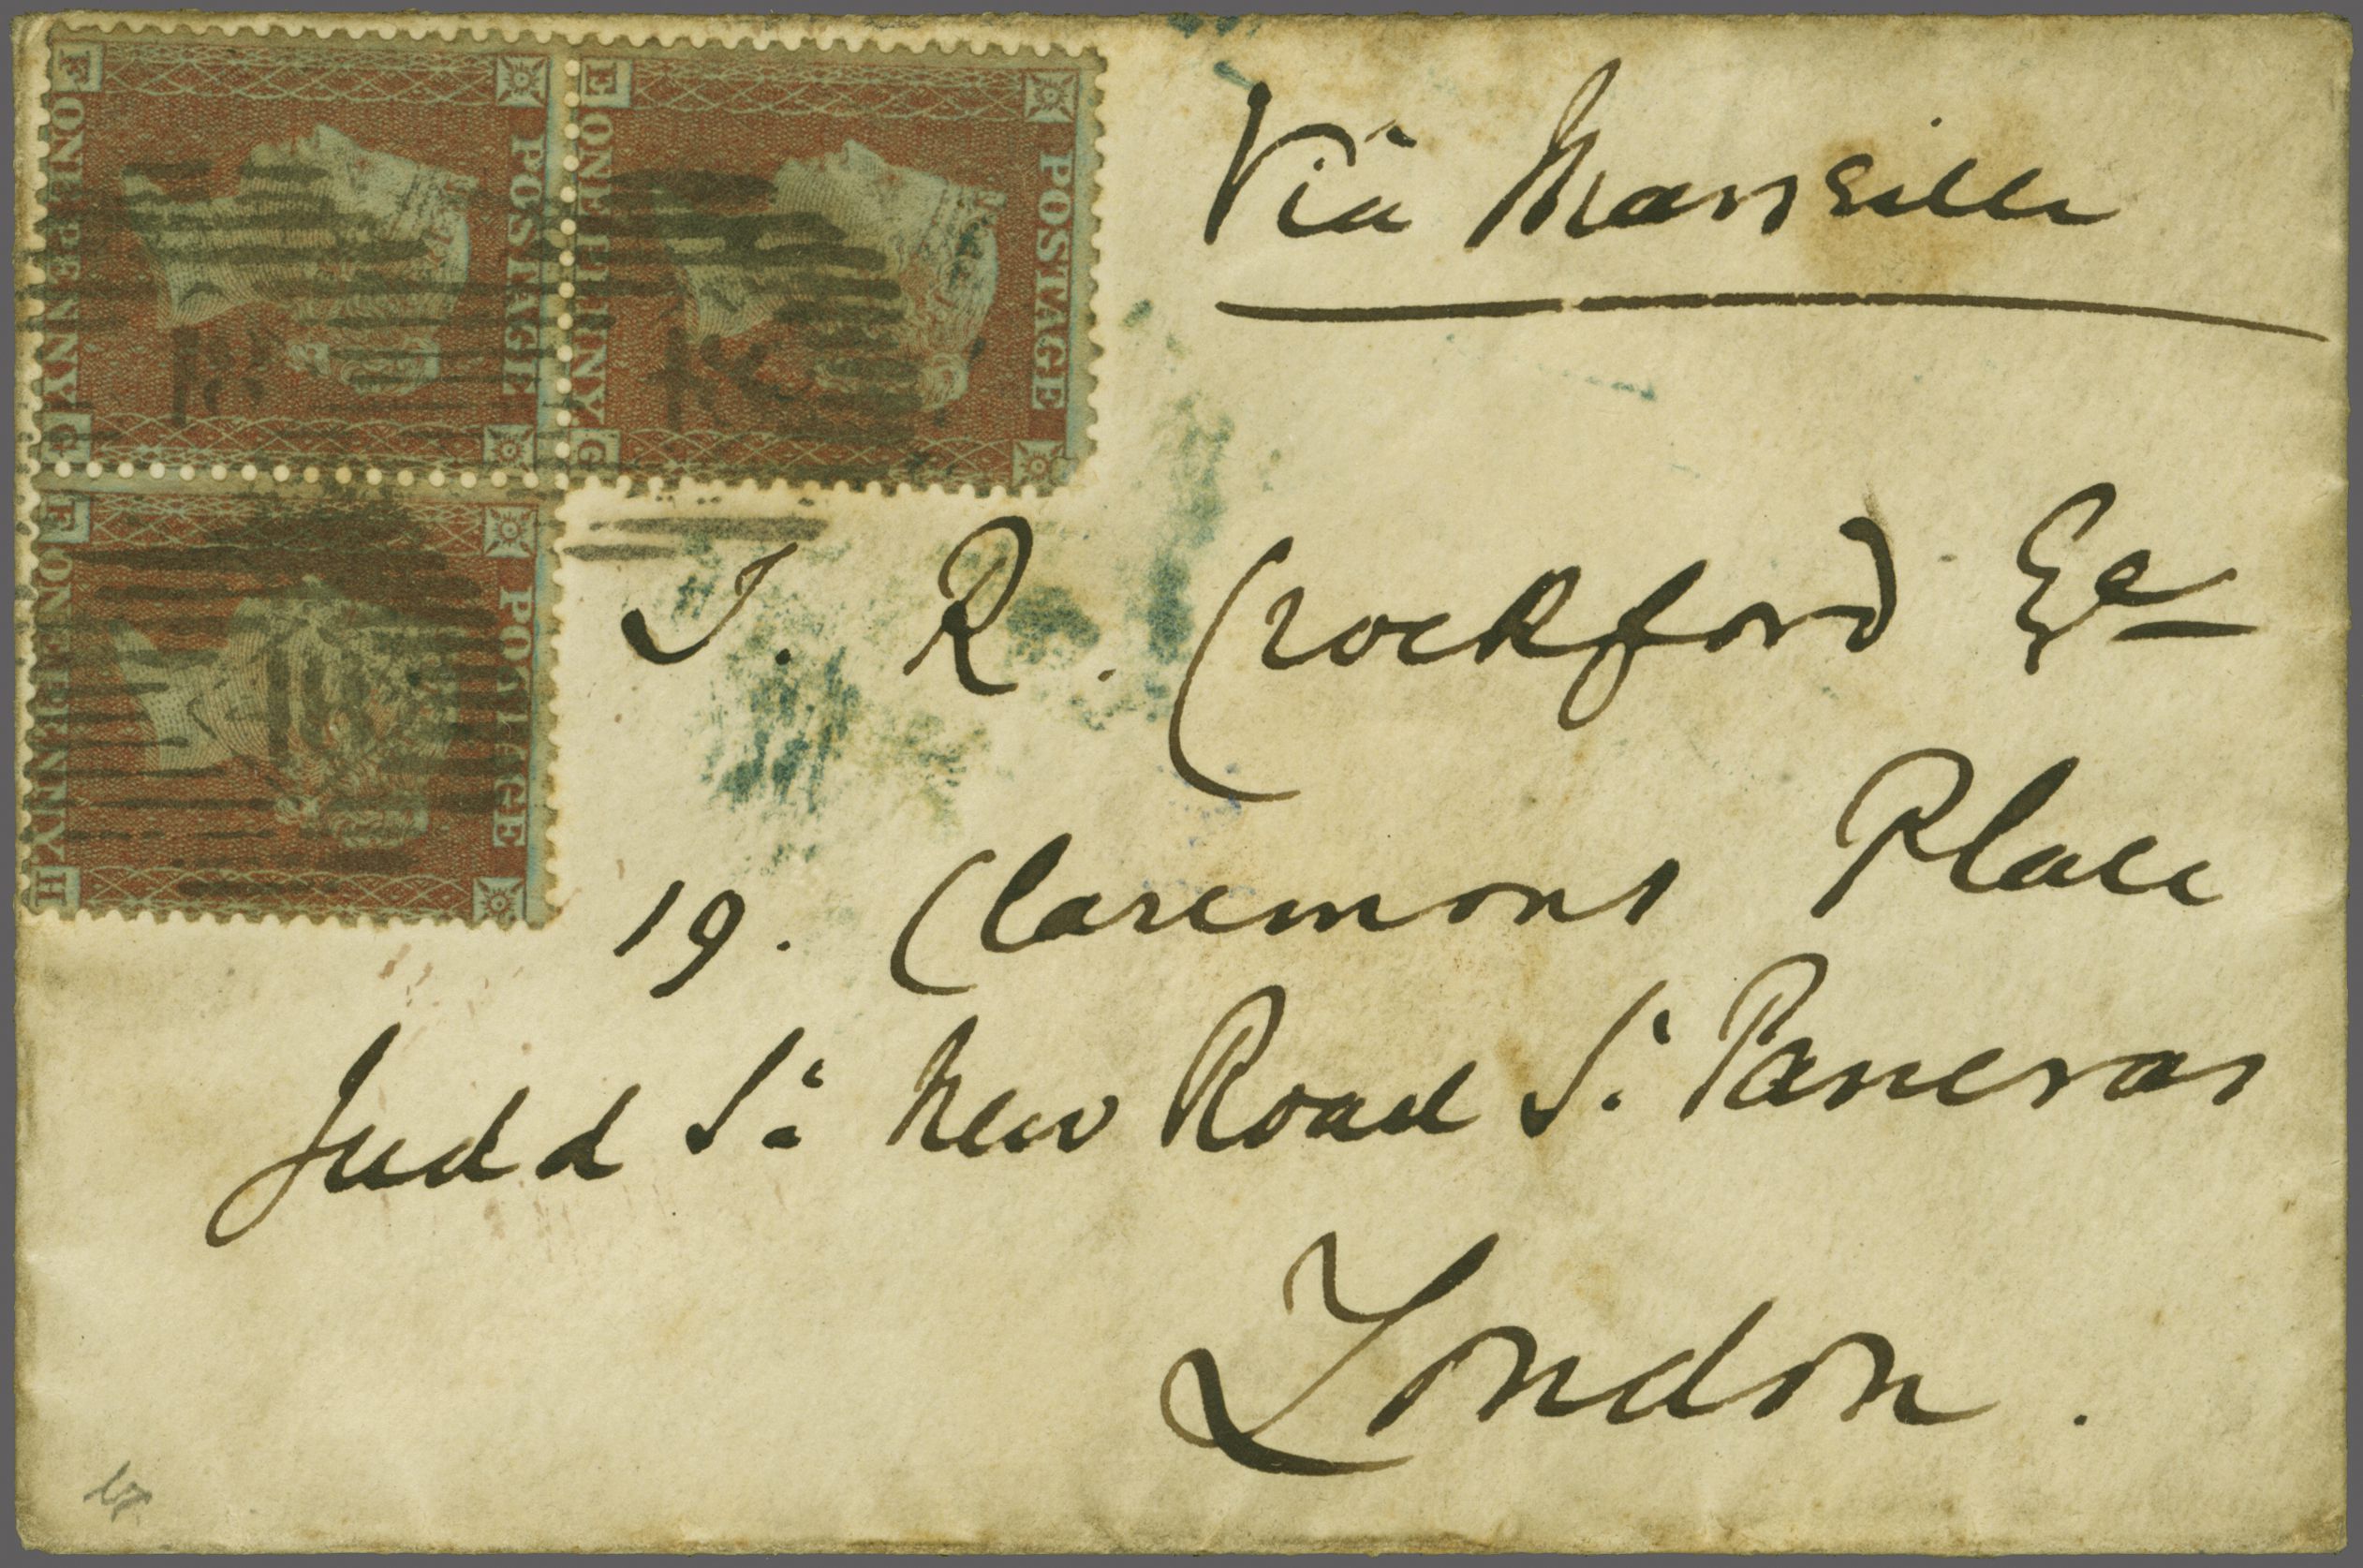 Via Marseille
J. R. Crockford Esq
19. Claremont Place
Judd St. New Road St. Pancras
London.
F POSTAGE ONE PENNY G
E POSTAGE ONE PENNY G
F POSTAGE ONE PENNY H